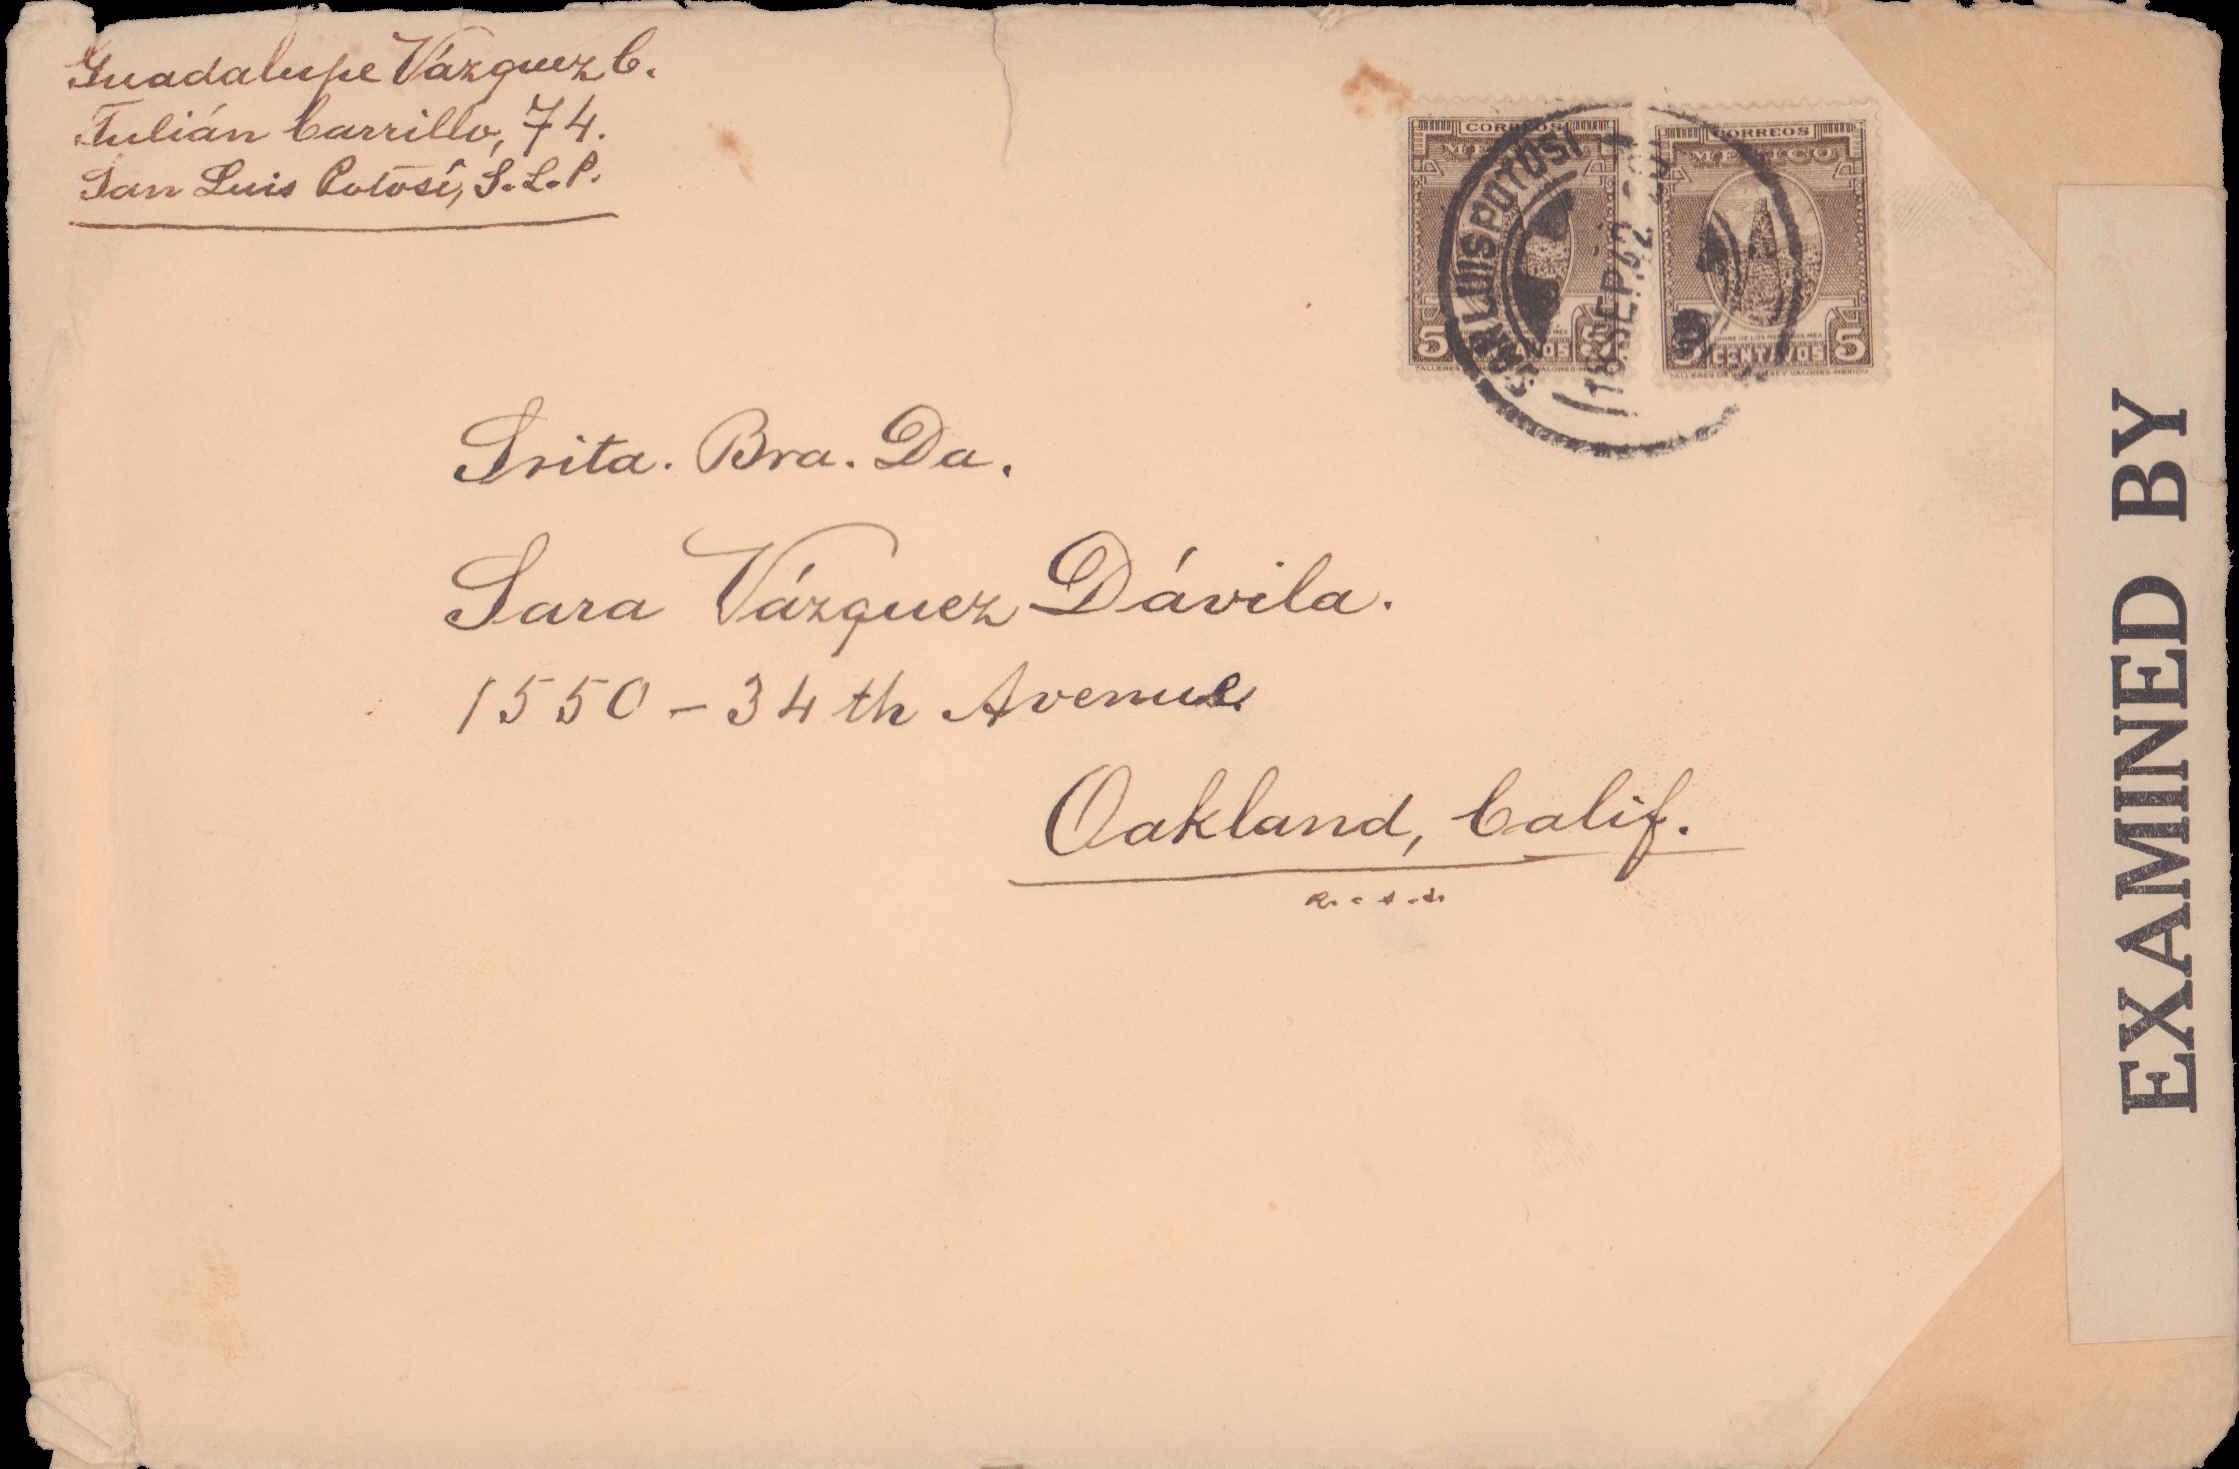 Guadalupe Vázquez C.
Julián Carrillo, 74.
San Luis Potosí, S.L.P.
CORREOS
MEXICO
5 CENTAVOS
CORREOS
MEXICO
5 CENTAVOS 5
SAN LUIS POTOSI
18 SEP. 42
Srita. Bra. Da.
Sara Vázquez Dávila.
1550 - 34 th Avenue.
Oakland, Calif.
EXAMINED BY